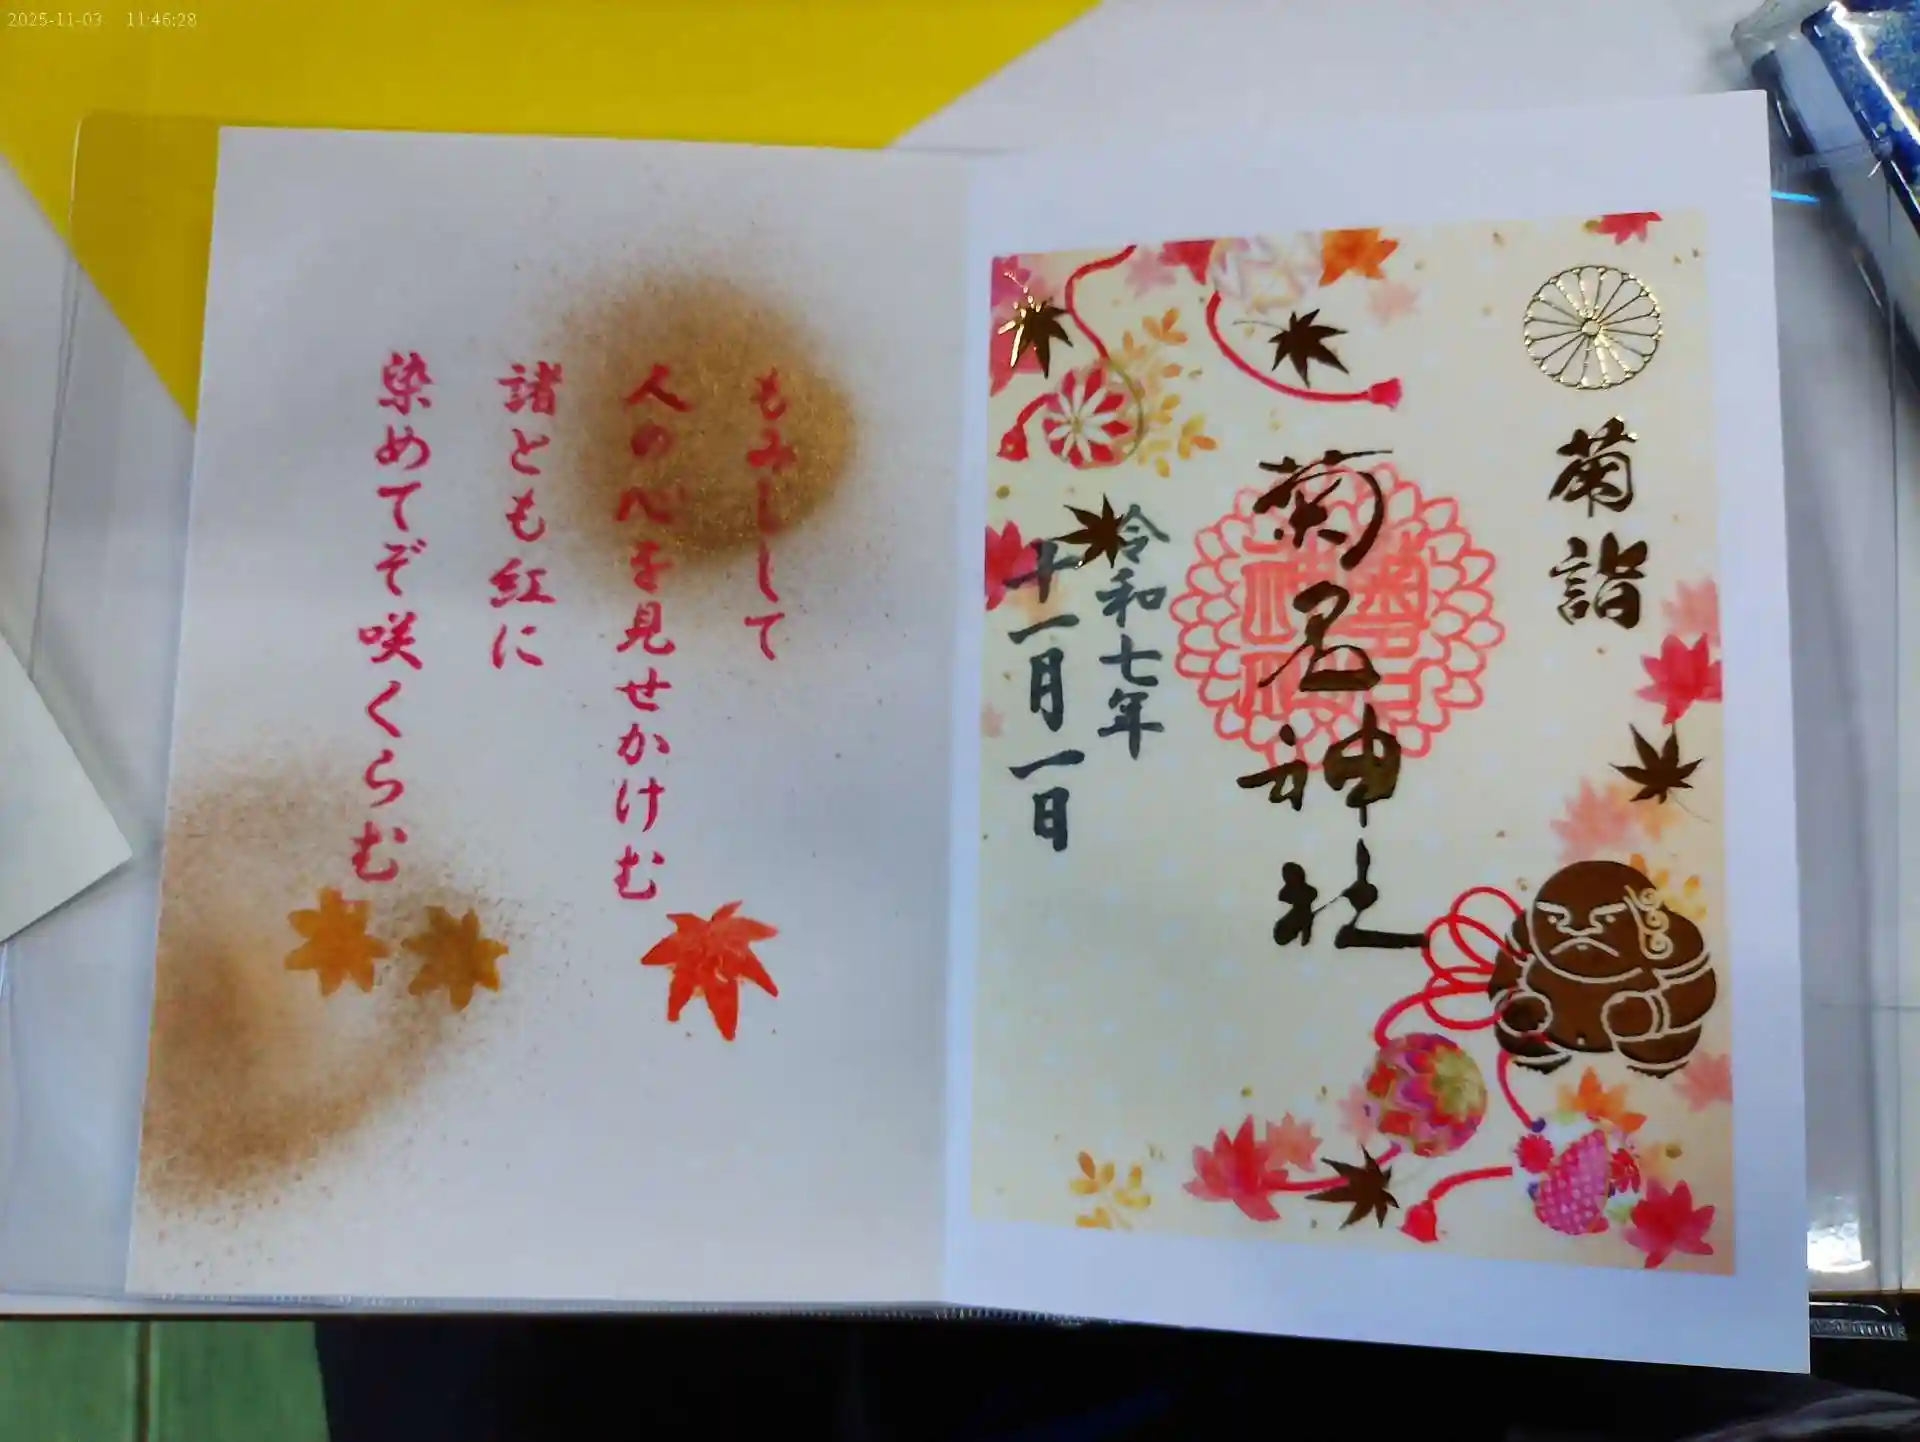 2025-11-03 11:46:28
菊詣
菊名神社
令和七年
十一月一日
もみじして
人の心を見せかけむ
諸とも紅に
染めてぞ咲くらむ